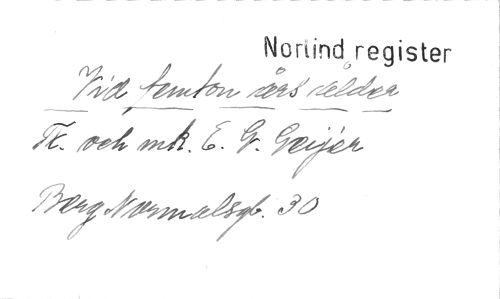 Norlind register
Vid femton års ålder
Tx. och mk. E. G. Geijer
Berg Normalsgb. 30